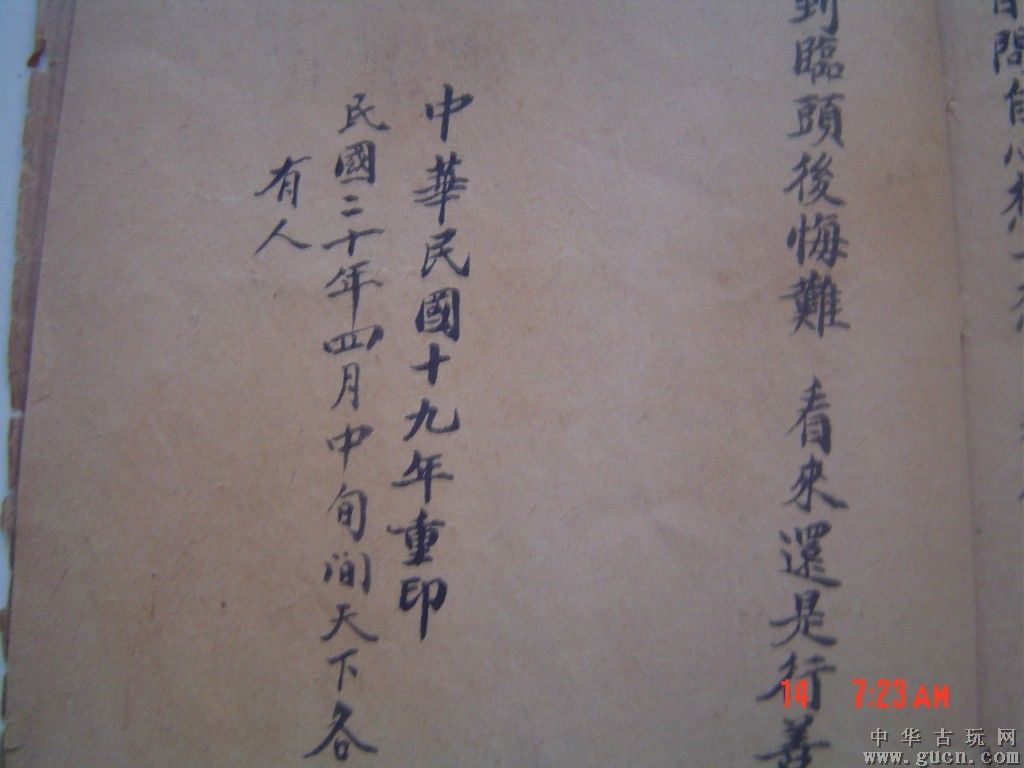 間自心想
到臨頭後悔難 看來還是行善
中華民國十九年重印
民國二十年四月中旬間天下各
有人
14 7:23AM
中华古玩网
www.gucn.com